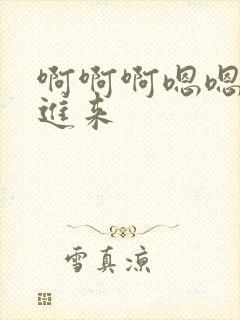 啊啊啊嗯嗯
进来
雪真凉